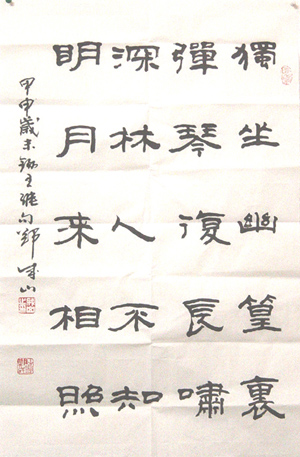 獨坐幽篁裏
彈琴復長嘯
深林人不知
明月来相照
甲申歲末錄王維句